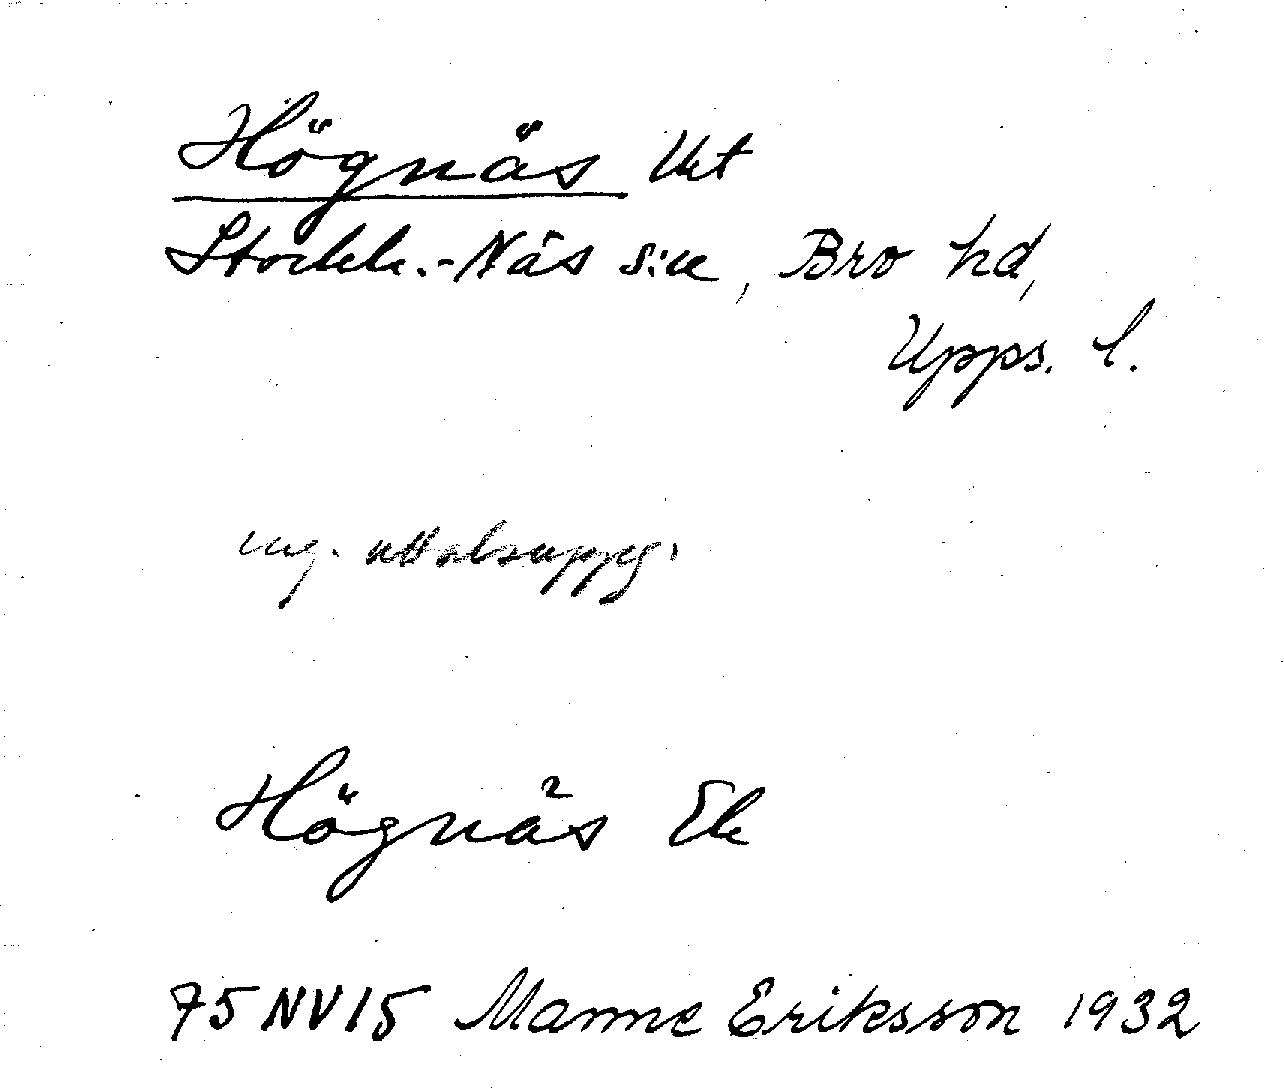 Högnäs Ukt
Stockh.-Näs sn, Bro hd,
Upps. l.
ing. uttalsuppg.
Högnäs Ek
75 NV 15 Manne Eriksson 1932